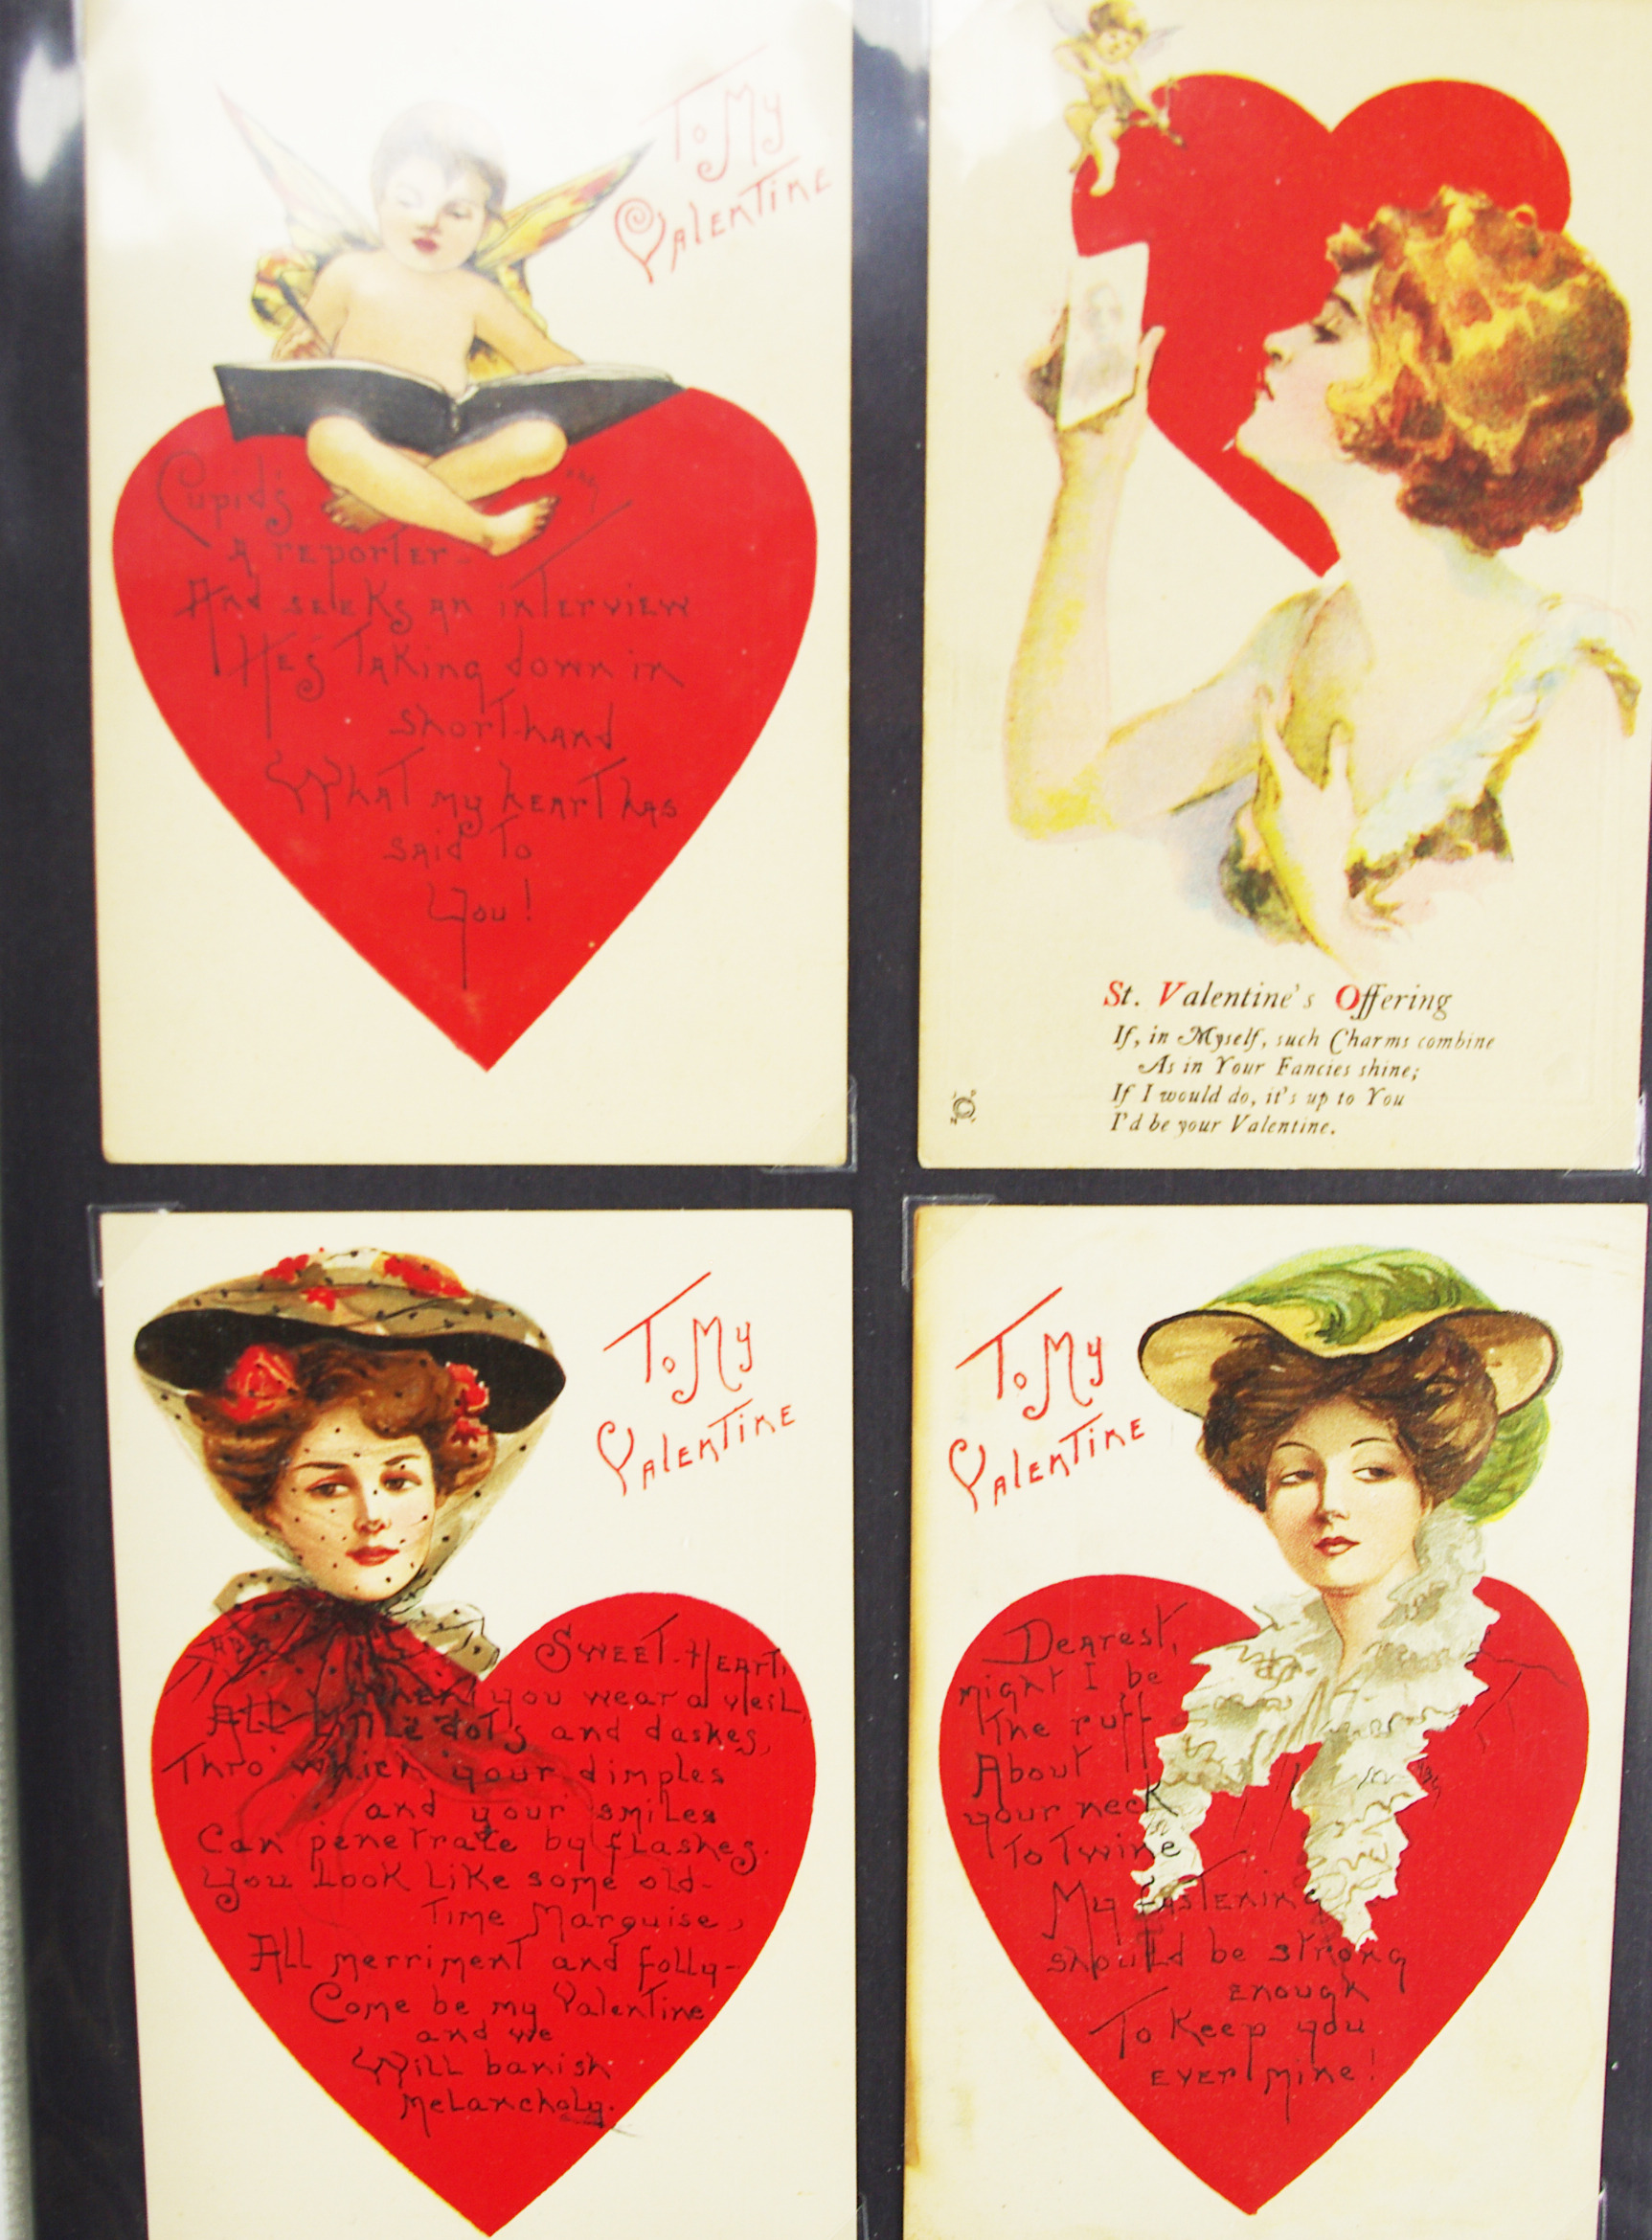 To My
Valentine
Cupid's
A reporter-
And seeks an interview
He's Taking down in
Shorthand
What my heart has
said To
You!
St. Valentine's Offering
If, in Myself, such Charms combine
As in Your Fancies shine;
If I would do, it's up to You
I'd be your Valentine.
To My
Valentine
Sweet-Heart,
when you wear a veil,
All little dots and dashes,
Thro' which your dimples
and your smiles
Can penetrate by flashes.
You Look Like some old-
Time Marquise,
All merriment and folly-
Come be my Valentine
and we
Will banish
melancholy.
To My
Valentine
Dearest,
might I be
The ruff
About
your neck
To Twine
My fastening
should be strong
enough
To Keep you
ever mine!